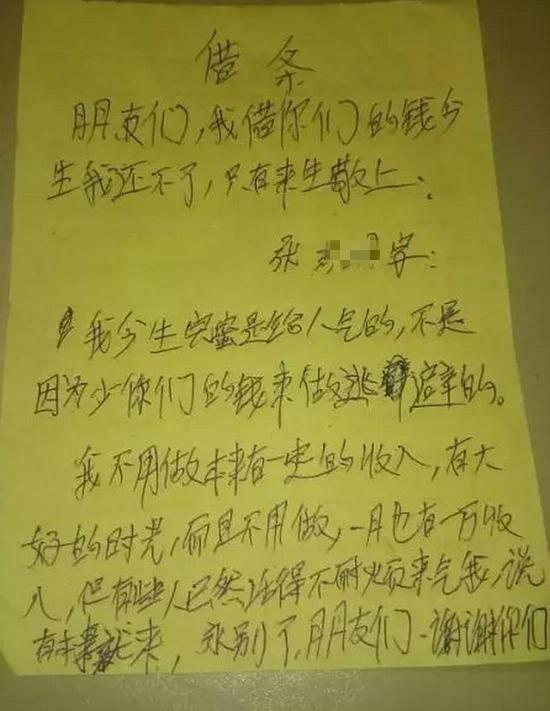 借条
朋友们,我借你们的钱今
生我还不了,只有来生敬上:
张 字:
我今生完蛋是给人气的,不是
因为少你们的钱来做逃避的。
我不用做本来有一定的收入,有大
好的时光,而且不用做,一月也有一万收
入,但有些人已然活得不耐烦而来气我,说
有本事就来,永别了,朋友们-谢谢你们